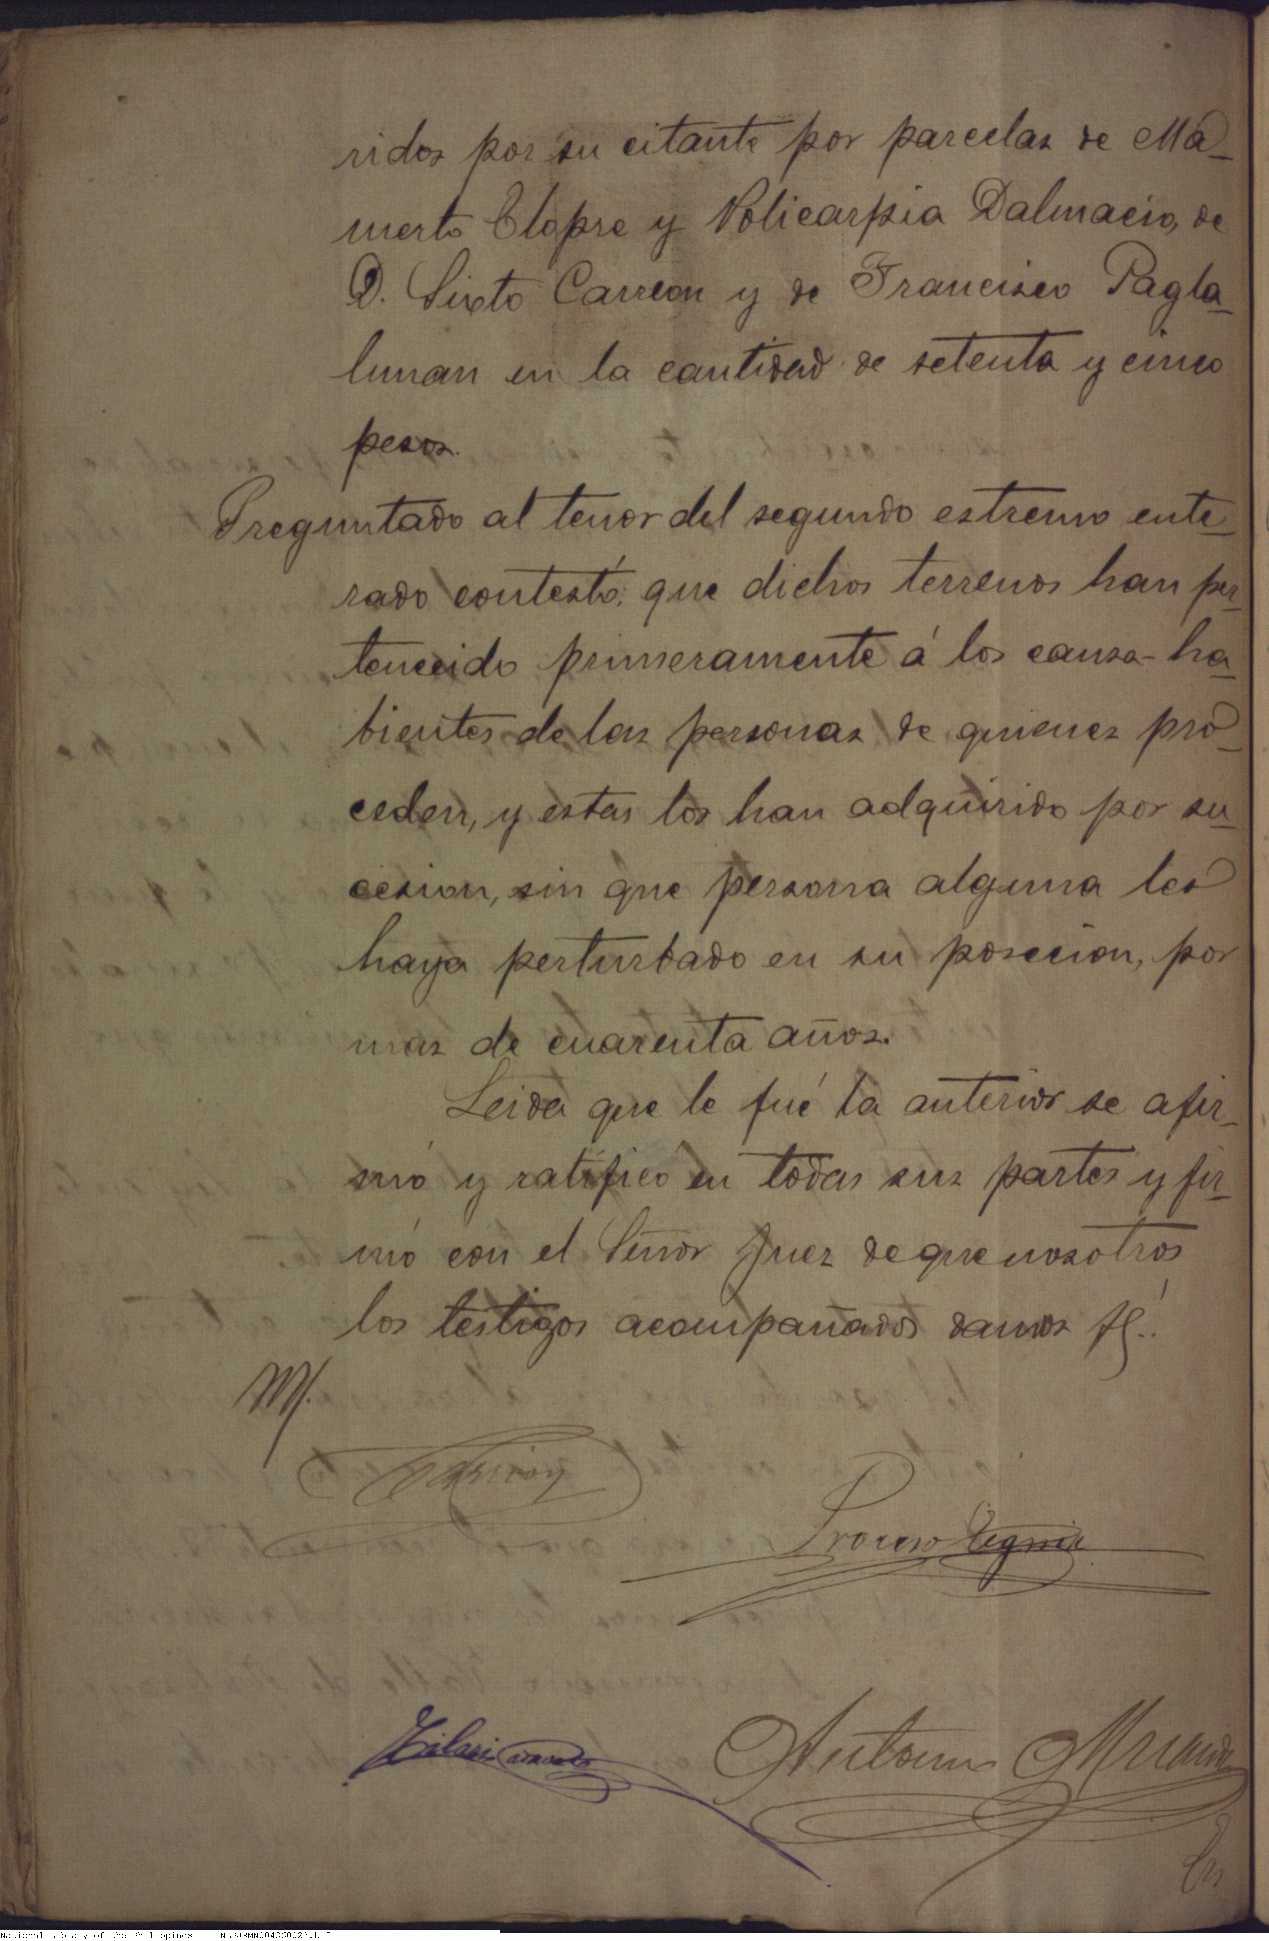 ridos por su citante por parcelas de Ma-
merto Elopre y Policarpia Dalmacio, de
D. Sixto Carreon y de Francisco Pagla-
lunan en la cantidad de setenta y cinco
pesos.
Preguntado al tenor del segundo estremo ente-
rado contestó: que dichos terrenos han per-
tenecido primeramente á los causa-ha-
bientes de las personas de quienes pro-
ceden, y estas los han adquirido por su-
cesion, sin que persona alguna les
haya perturbado en su posecion, por
mas de cuarenta años.
Leida que le fué la anterior se afir-
mó y ratificó en todas sus partes y fir-
mó con el Señor Juez de que nosotros
los testigos acompañados damos fé.
M.
Proceso
Antonio
En
National Library of the Philippines